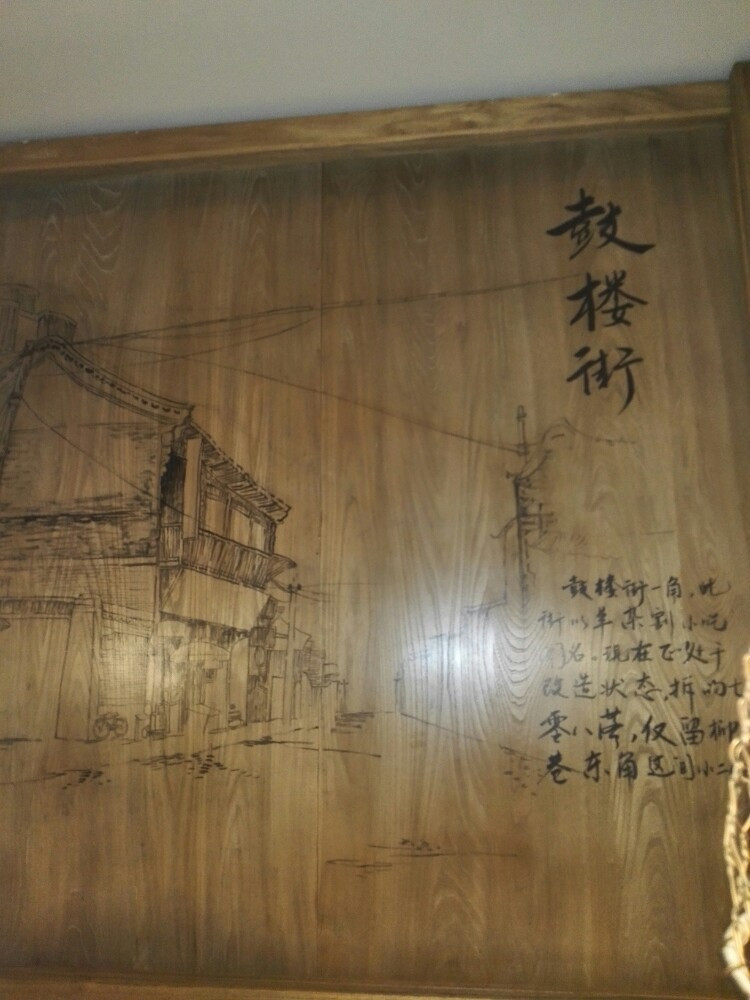 鼓楼街
鼓楼街一角,此
街以羊杂割小吃
闻名。现在正处于
改造状态,拆的七
零八落,仅留柳
巷东角这间小二